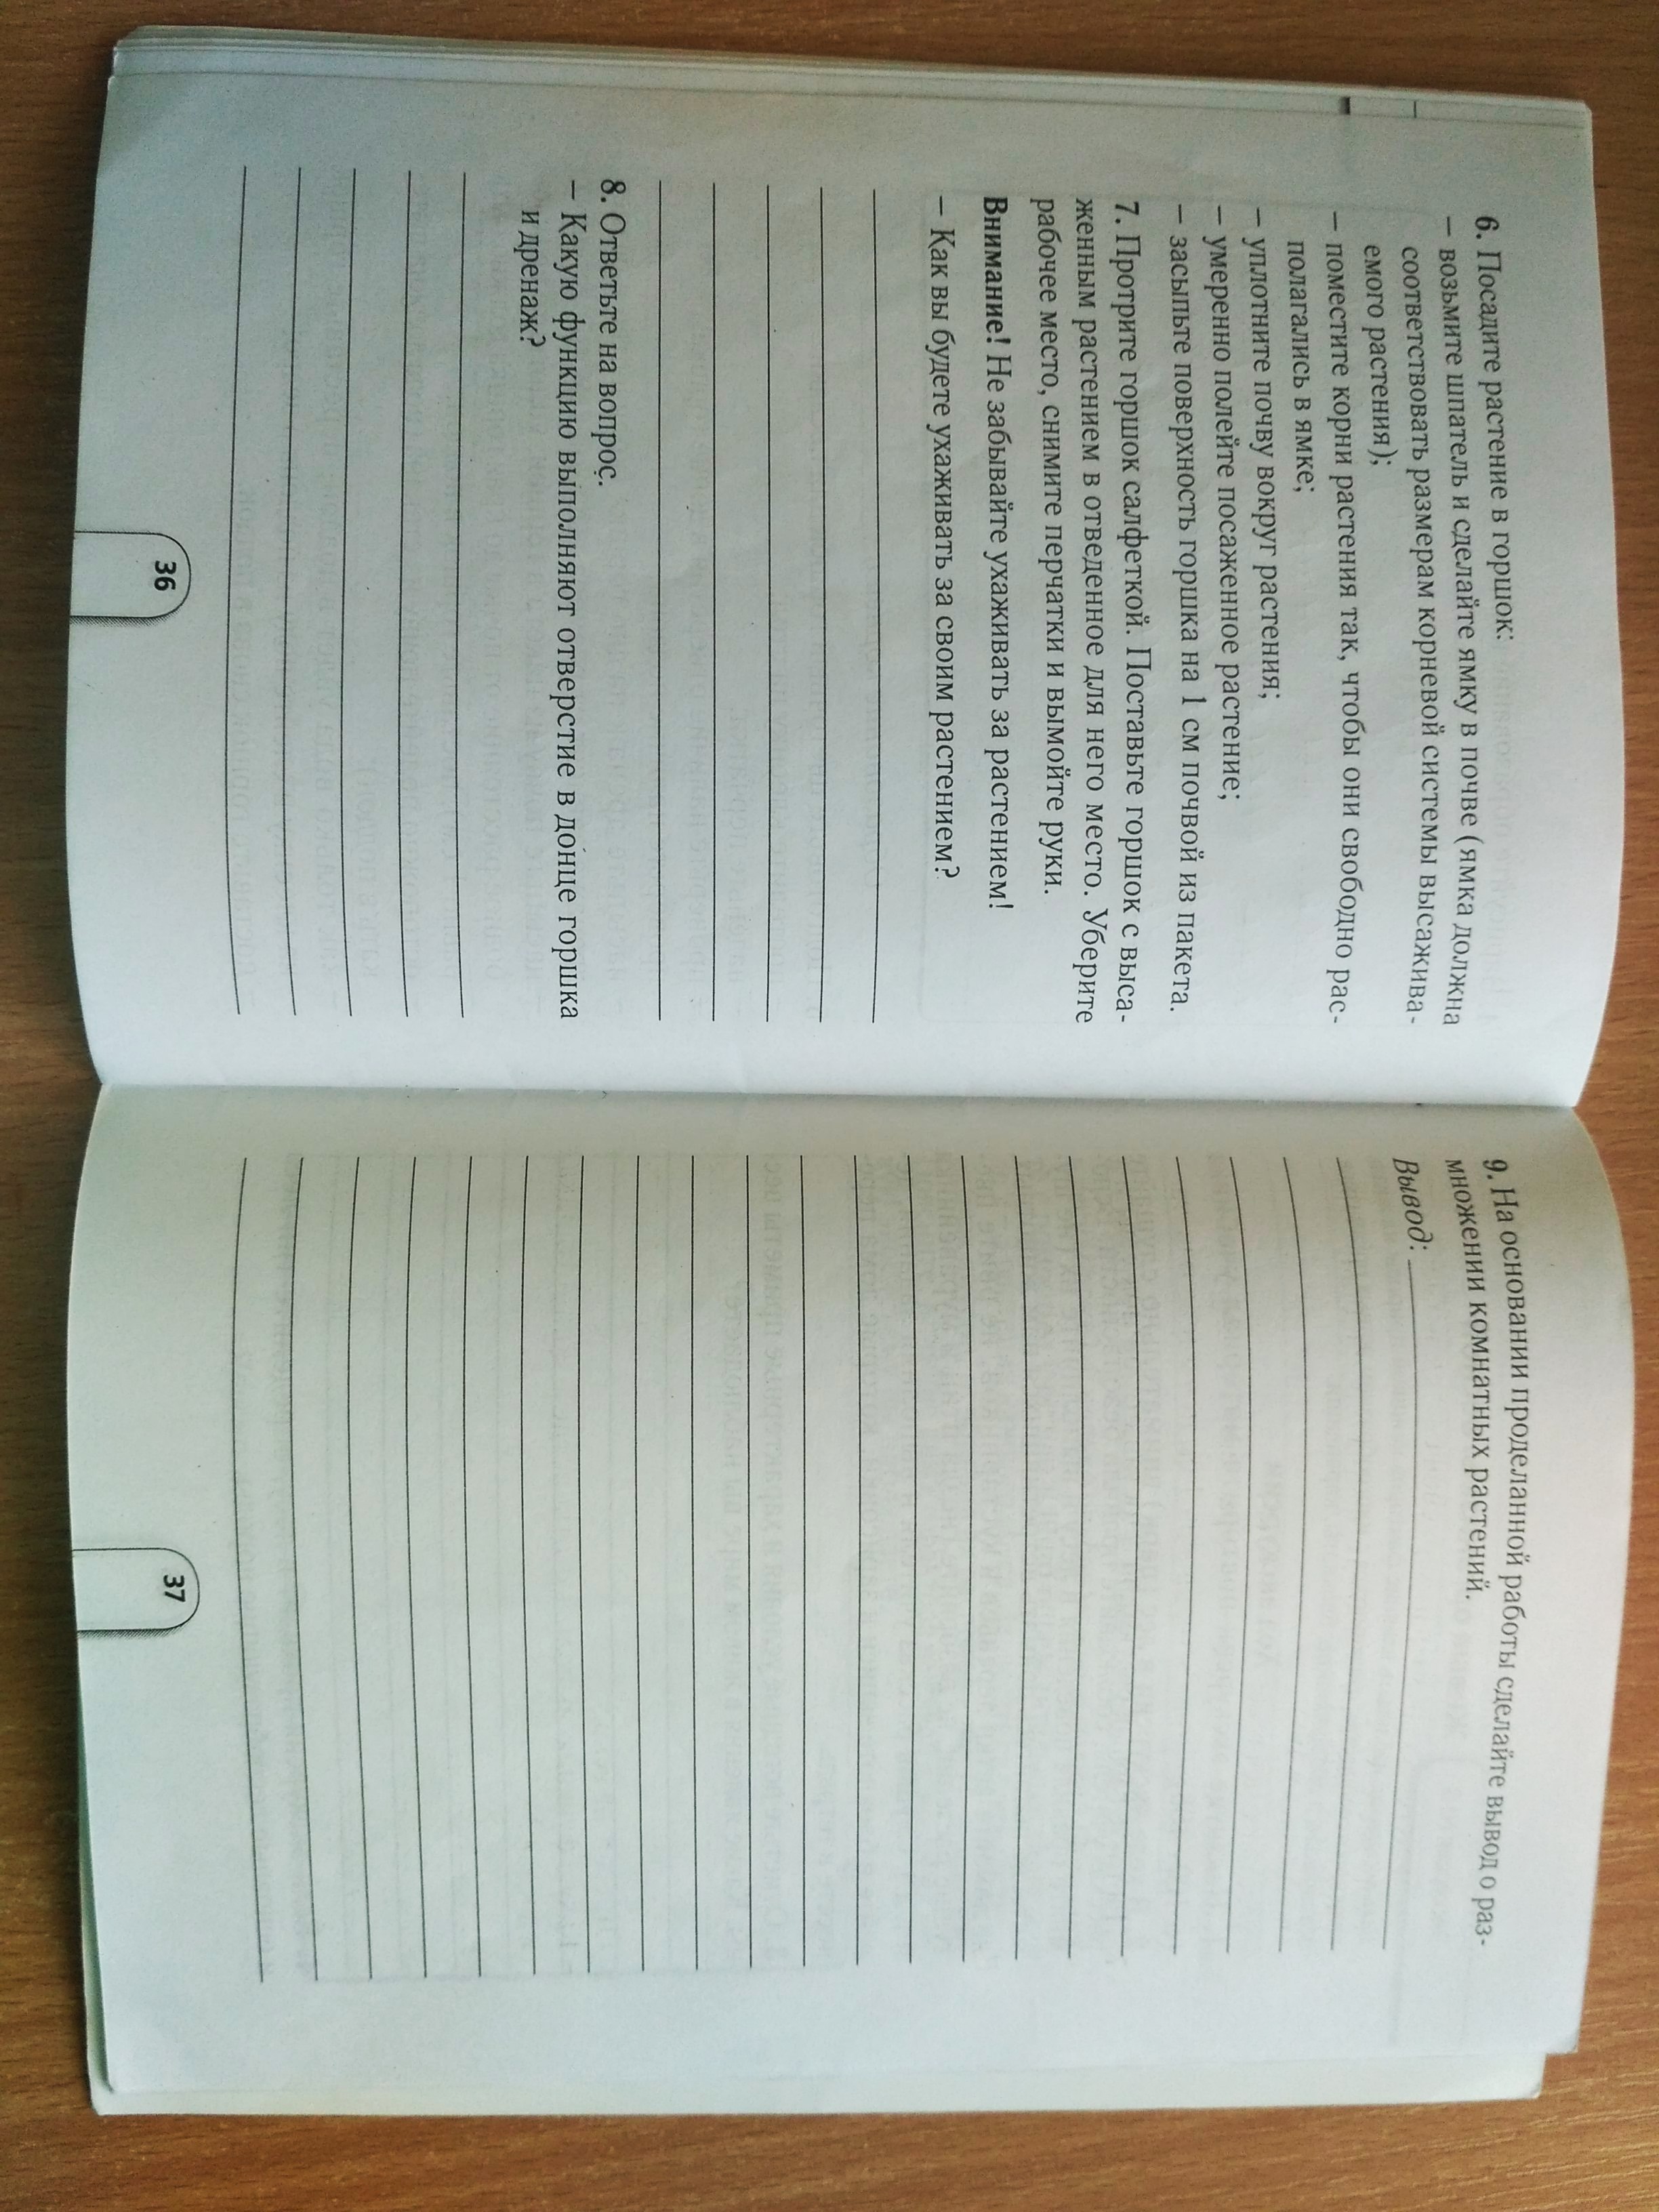 6. Посадите растение в горшок:
– возьмите шпатель и сделайте ямку в почве (ямка должна
соответствовать размерам корневой системы высажива-
емого растения);
– поместите корни растения так, чтобы они свободно рас-
полагались в ямке;
– уплотните почву вокруг растения;
– умеренно полейте посаженное растение;
– засыпьте поверхность горшка на 1 см почвой из пакета.
7. Протрите горшок салфеткой. Поставьте горшок с выса-
женным растением в отведенное для него место. Уберите
рабочее место, снимите перчатки и вымойте руки.
Внимание! Не забывайте ухаживать за растением!
– Как вы будете ухаживать за своим растением?
8. Ответьте на вопрос.
– Какую функцию выполняют отверстие в до́нце горшка
и дренаж?
36
9. На основании проделанной работы сделайте вывод о раз-
множении комнатных растений.
Вывод:
37